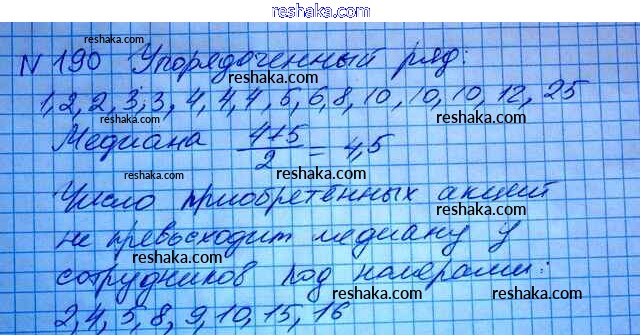 reshaka.com
N 190 Упорядоченный ряд:
reshaka.com
1, 2, 2, 3, 3, 4, 4, 4, 5, 6, 8, 10, 10, 10, 12, 25
reshaka.com
Медиана 4+5/2 = 4,5
reshaka.com
reshaka.com
Число приобретенных акций
reshaka.com
не превосходит медиану у
reshaka.com
сотрудников под номерами:
reshaka.com
2, 4, 5, 8, 9, 10, 15, 16
reshaka.com